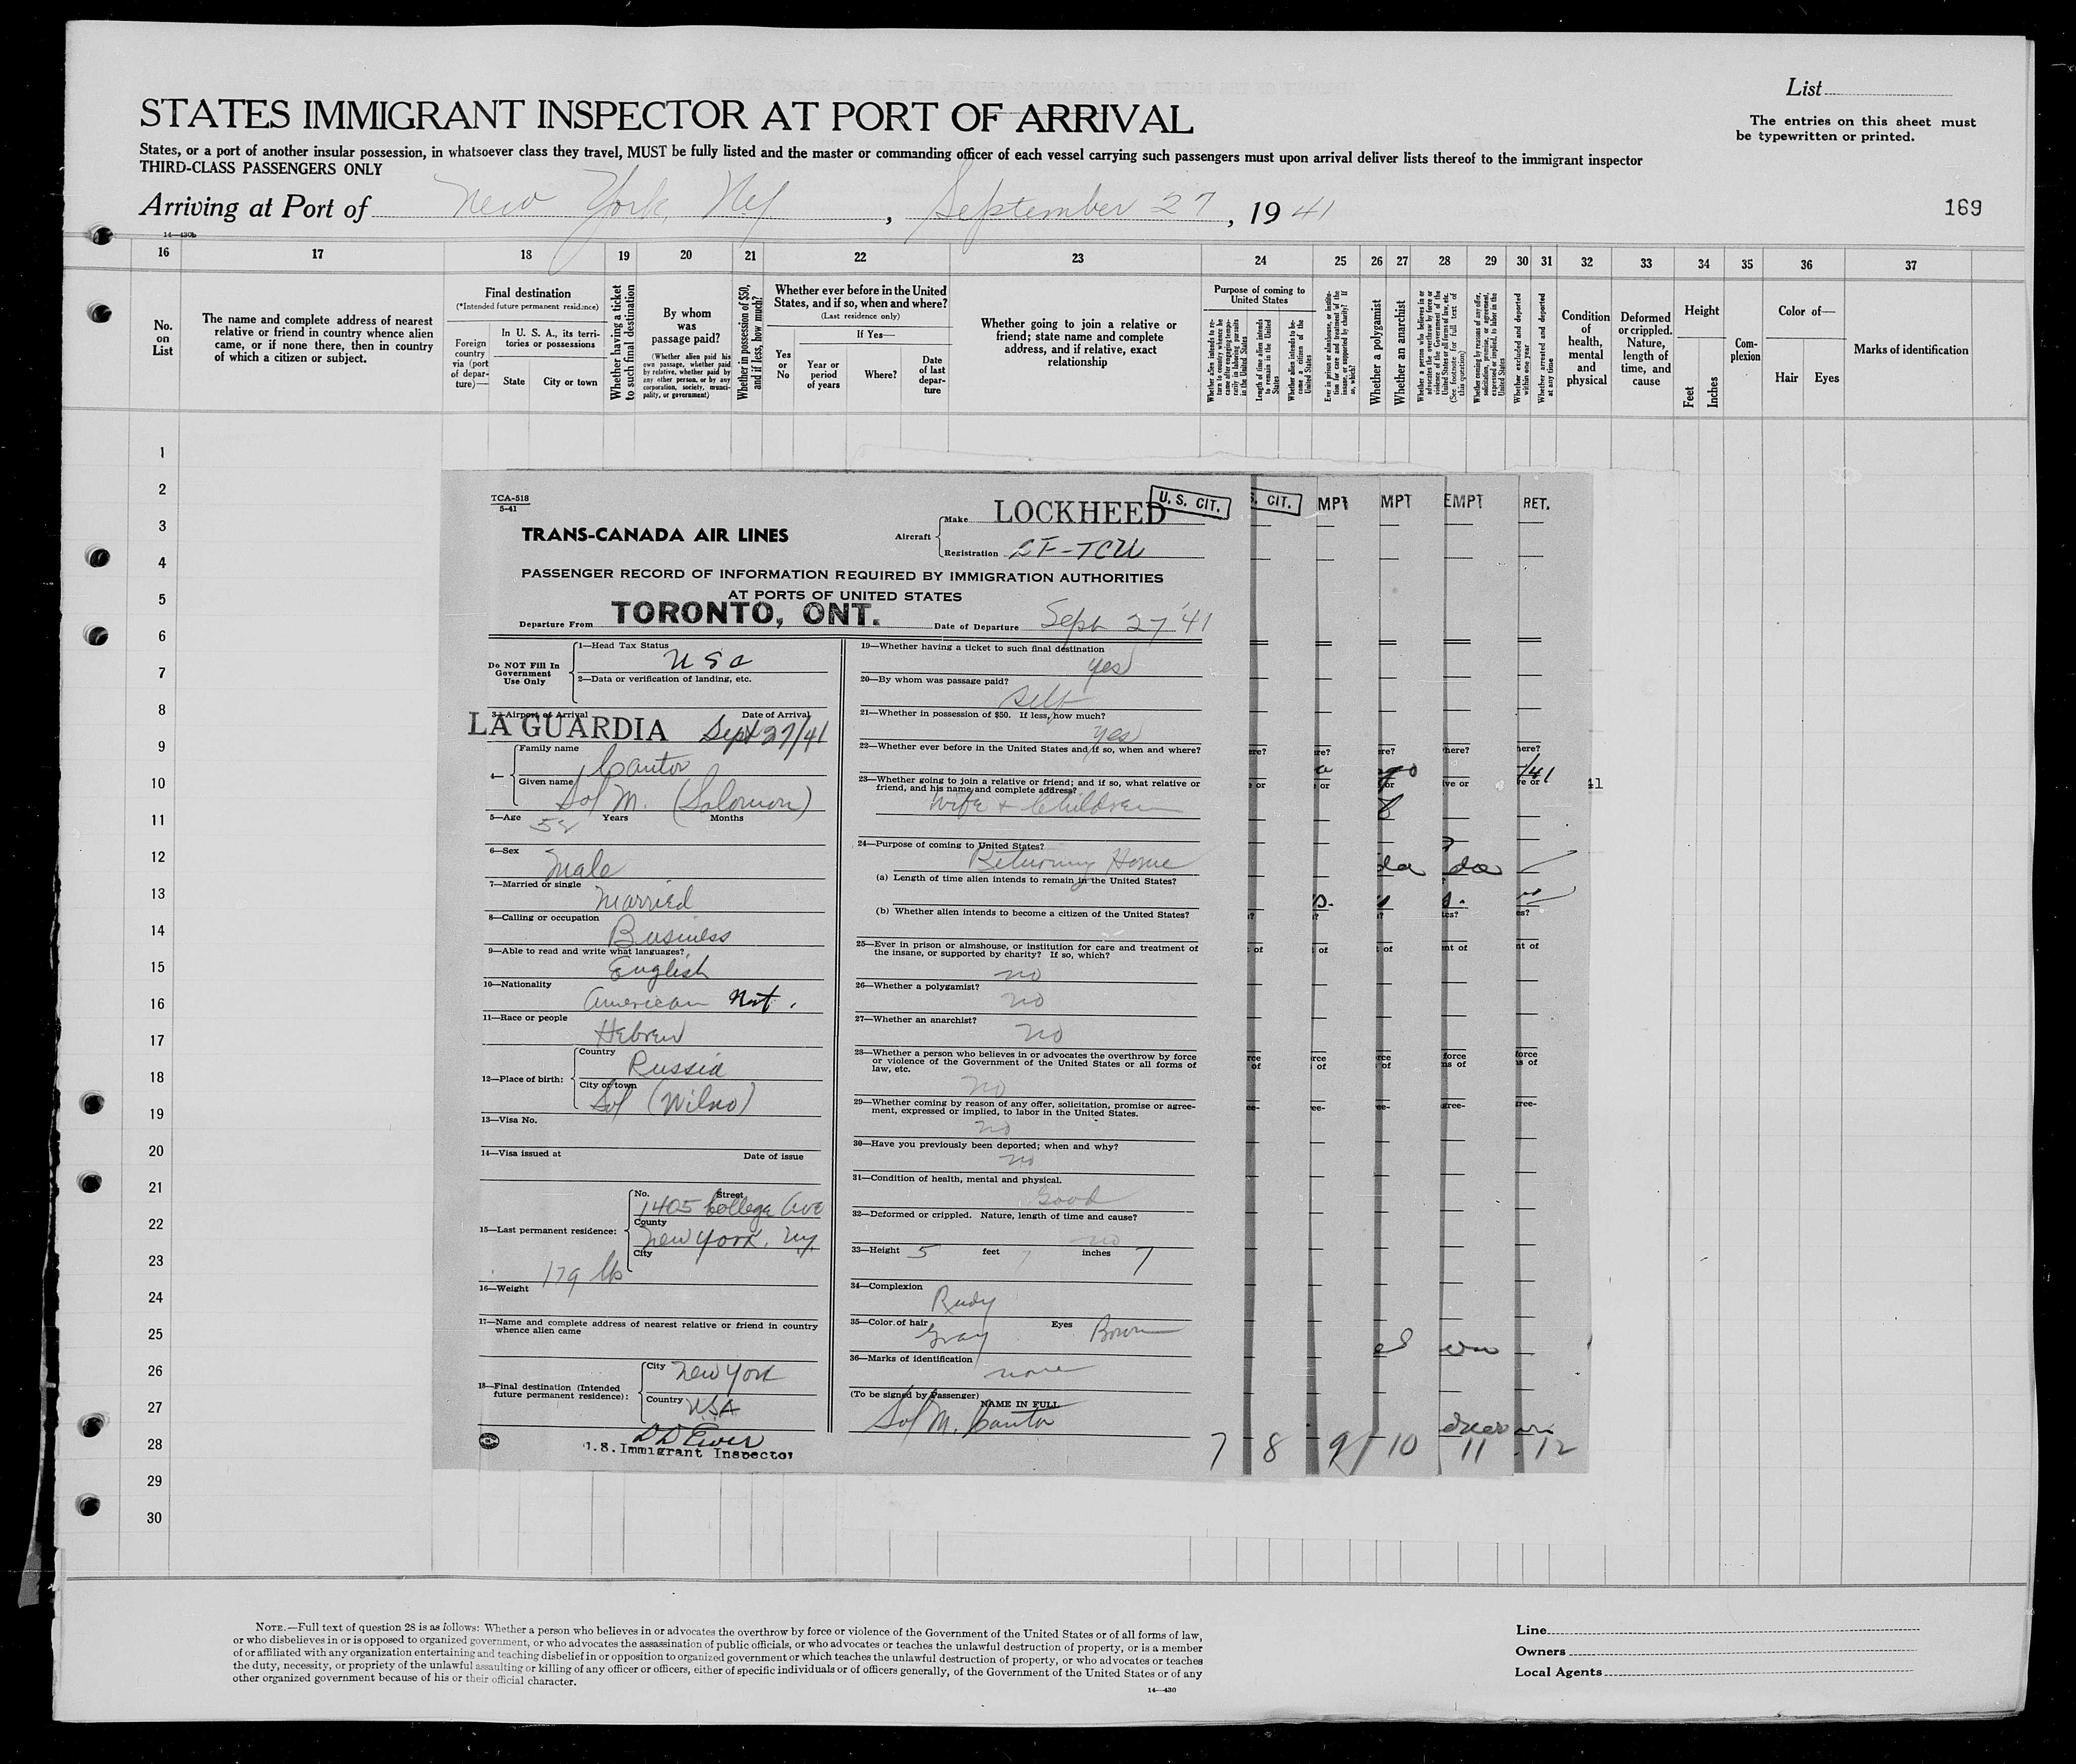 List
STATES IMMIGRANT INSPECTOR AT PORT OF ARRIVAL
The entries on this sheet must
be typewritten or printed.
States, or a port of another insular possession, in whatsoever class they travel, MUST be fully listed and the master or commanding officer of each vessel carrying such passengers must upon arrival deliver lists thereof to the immigrant inspector
THIRD-CLASS PASSENGERS ONLY
Arriving at Port of New York, Ny, September 27, 1941
169
14—430b
16 17 18 19 20 21 22 23 24 25 26 27 28 29 30 31 32 33 34 35 36 37
No. on List
The name and complete address of nearest
relative or friend in country whence alien
came, or if none there, then in country
of which a citizen or subject.
Final destination
(*Intended future permanent residence)
Foreign country via (port of departure)—
In U. S. A., its territories or possessions
State
City or town
Whether having a ticket to such final destination
By whom was passage paid?
(Whether alien paid his own passage, whether paid by relative, whether paid by any other person, or by any corporation, society, municipality, or government)
Whether in possession of $50, and if less, how much?
Whether ever before in the United
States, and if so, when and where?
(Last residence only)
Yes or No
If Yes—
Year or period of years
Where?
Date of last departure
Whether going to join a relative or
friend; state name and complete
address, and if relative, exact
relationship
Purpose of coming to United States
Length of time alien intends to remain in the United States
Whether alien intends to become a citizen of the United States
Whether a polygamist
Whether an anarchist
Whether excluded and deported within one year
Whether arrested and deported at any time
Condition of health, mental and physical
Deformed or crippled. Nature, length of time, and cause
Height
Feet
Inches
Complexion
Color of—
Hair
Eyes
Marks of identification
1
2
3
4
5
6
7
8
9
10
11
12
13
14
15
16
17
18
19
20
21
22
23
24
25
26
27
28
29
30
TCA-518
5-41
TRANS-CANADA AIR LINES
Aircraft
Make LOCKHEED
U. S. CIT.
S. CIT.
MPT
MPT
EMPT
RET.
Registration CF-TCU
PASSENGER RECORD OF INFORMATION REQUIRED BY IMMIGRATION AUTHORITIES
AT PORTS OF UNITED STATES
Departure From TORONTO, ONT.
Date of Departure Sept 27 '41
Do NOT Fill In
Government
Use Only
1—Head Tax Status
USC
2—Data or verification of landing, etc.
3—Airport of Arrival
LA GUARDIA
Date of Arrival
Sept 27/41
4—
Family name
Cantor
Given name
Sol M. (Solomon)
5—Age
Years
Months
6—Sex
Male
7—Married or single
Married
8—Calling or occupation
Business
9—Able to read and write what languages?
English
10—Nationality
American Nat.
11—Race or people
Hebrew
12—Place of birth:
Country
Russia
City or town
Sol (Wilno)
13—Visa No.
14—Visa issued at
Date of issue
15—Last permanent residence:
No.
Street
1405 College Ave
County
New York, Ny.
City
179 lb
16—Weight
17—Name and complete address of nearest relative or friend in country
whence alien came
18—Final destination (Intended
future permanent residence):
City New York
Country USA
U.S. Immigrant Inspector
19—Whether having a ticket to such final destination
yes
20—By whom was passage paid?
Self
21—Whether in possession of $50. If less, how much?
yes
22—Whether ever before in the United States and if so, when and where?
23—Whether going to join a relative or friend; and if so, what relative or
friend, and his name and complete address?
Wife + Children
24—Purpose of coming to United States?
Returning Home
(a) Length of time alien intends to remain in the United States?
(b) Whether alien intends to become a citizen of the United States?
25—Ever in prison or almshouse, or institution for care and treatment of
the insane, or supported by charity? If so, which?
no
26—Whether a polygamist?
no
27—Whether an anarchist?
no
28—Whether a person who believes in or advocates the overthrow by force
or violence of the Government of the United States or all forms of
law, etc.
no
29—Whether coming by reason of any offer, solicitation, promise or agree-
ment, expressed or implied, to labor in the United States.
no
30—Have you previously been deported; when and why?
no
31—Condition of health, mental and physical.
Good
32—Deformed or crippled. Nature, length of time and cause?
no
33—Height 5 feet 7 inches 7
34—Complexion
Rudy
35—Color of hair
Gray
Eyes
Brown
36—Marks of identification
none
(To be signed by Passenger)
NAME IN FULL
Sol M. Cantor
7 8 9 10 11 12
NOTE.—Full text of question 28 is as follows: Whether a person who believes in or advocates the overthrow by force or violence of the Government of the United States or of all forms of law,
or who disbelieves in or is opposed to organized government, or who advocates the assassination of public officials, or who advocates or teaches the unlawful destruction of property, or is a member
of or affiliated with any organization entertaining and teaching disbelief in or opposition to organized government or which teaches the unlawful destruction of property, or who advocates or teaches
the duty, necessity, or propriety of the unlawful assaulting or killing of any officer or officers, either of specific individuals or of officers generally, of the Government of the United States or of any
other organized government because of his or their official character.
14—430
Line
Owners
Local Agents